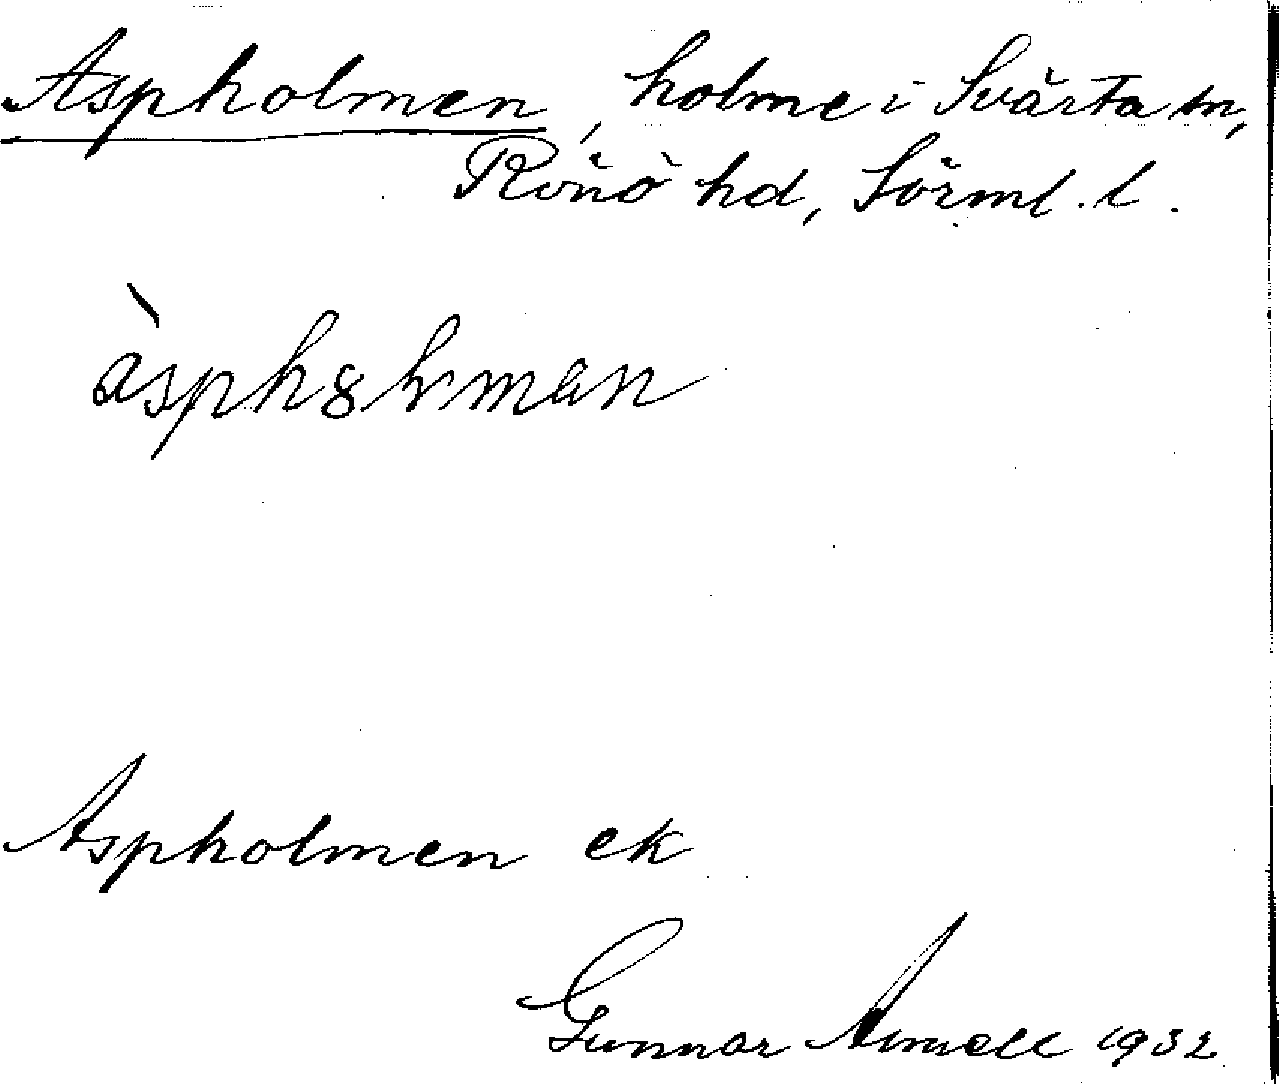 Aspholmen, holme i Svärta sn,
Rönö hd, Sörml. l.
àsphȣlman
Aspholmen ek
Gunnar 1932